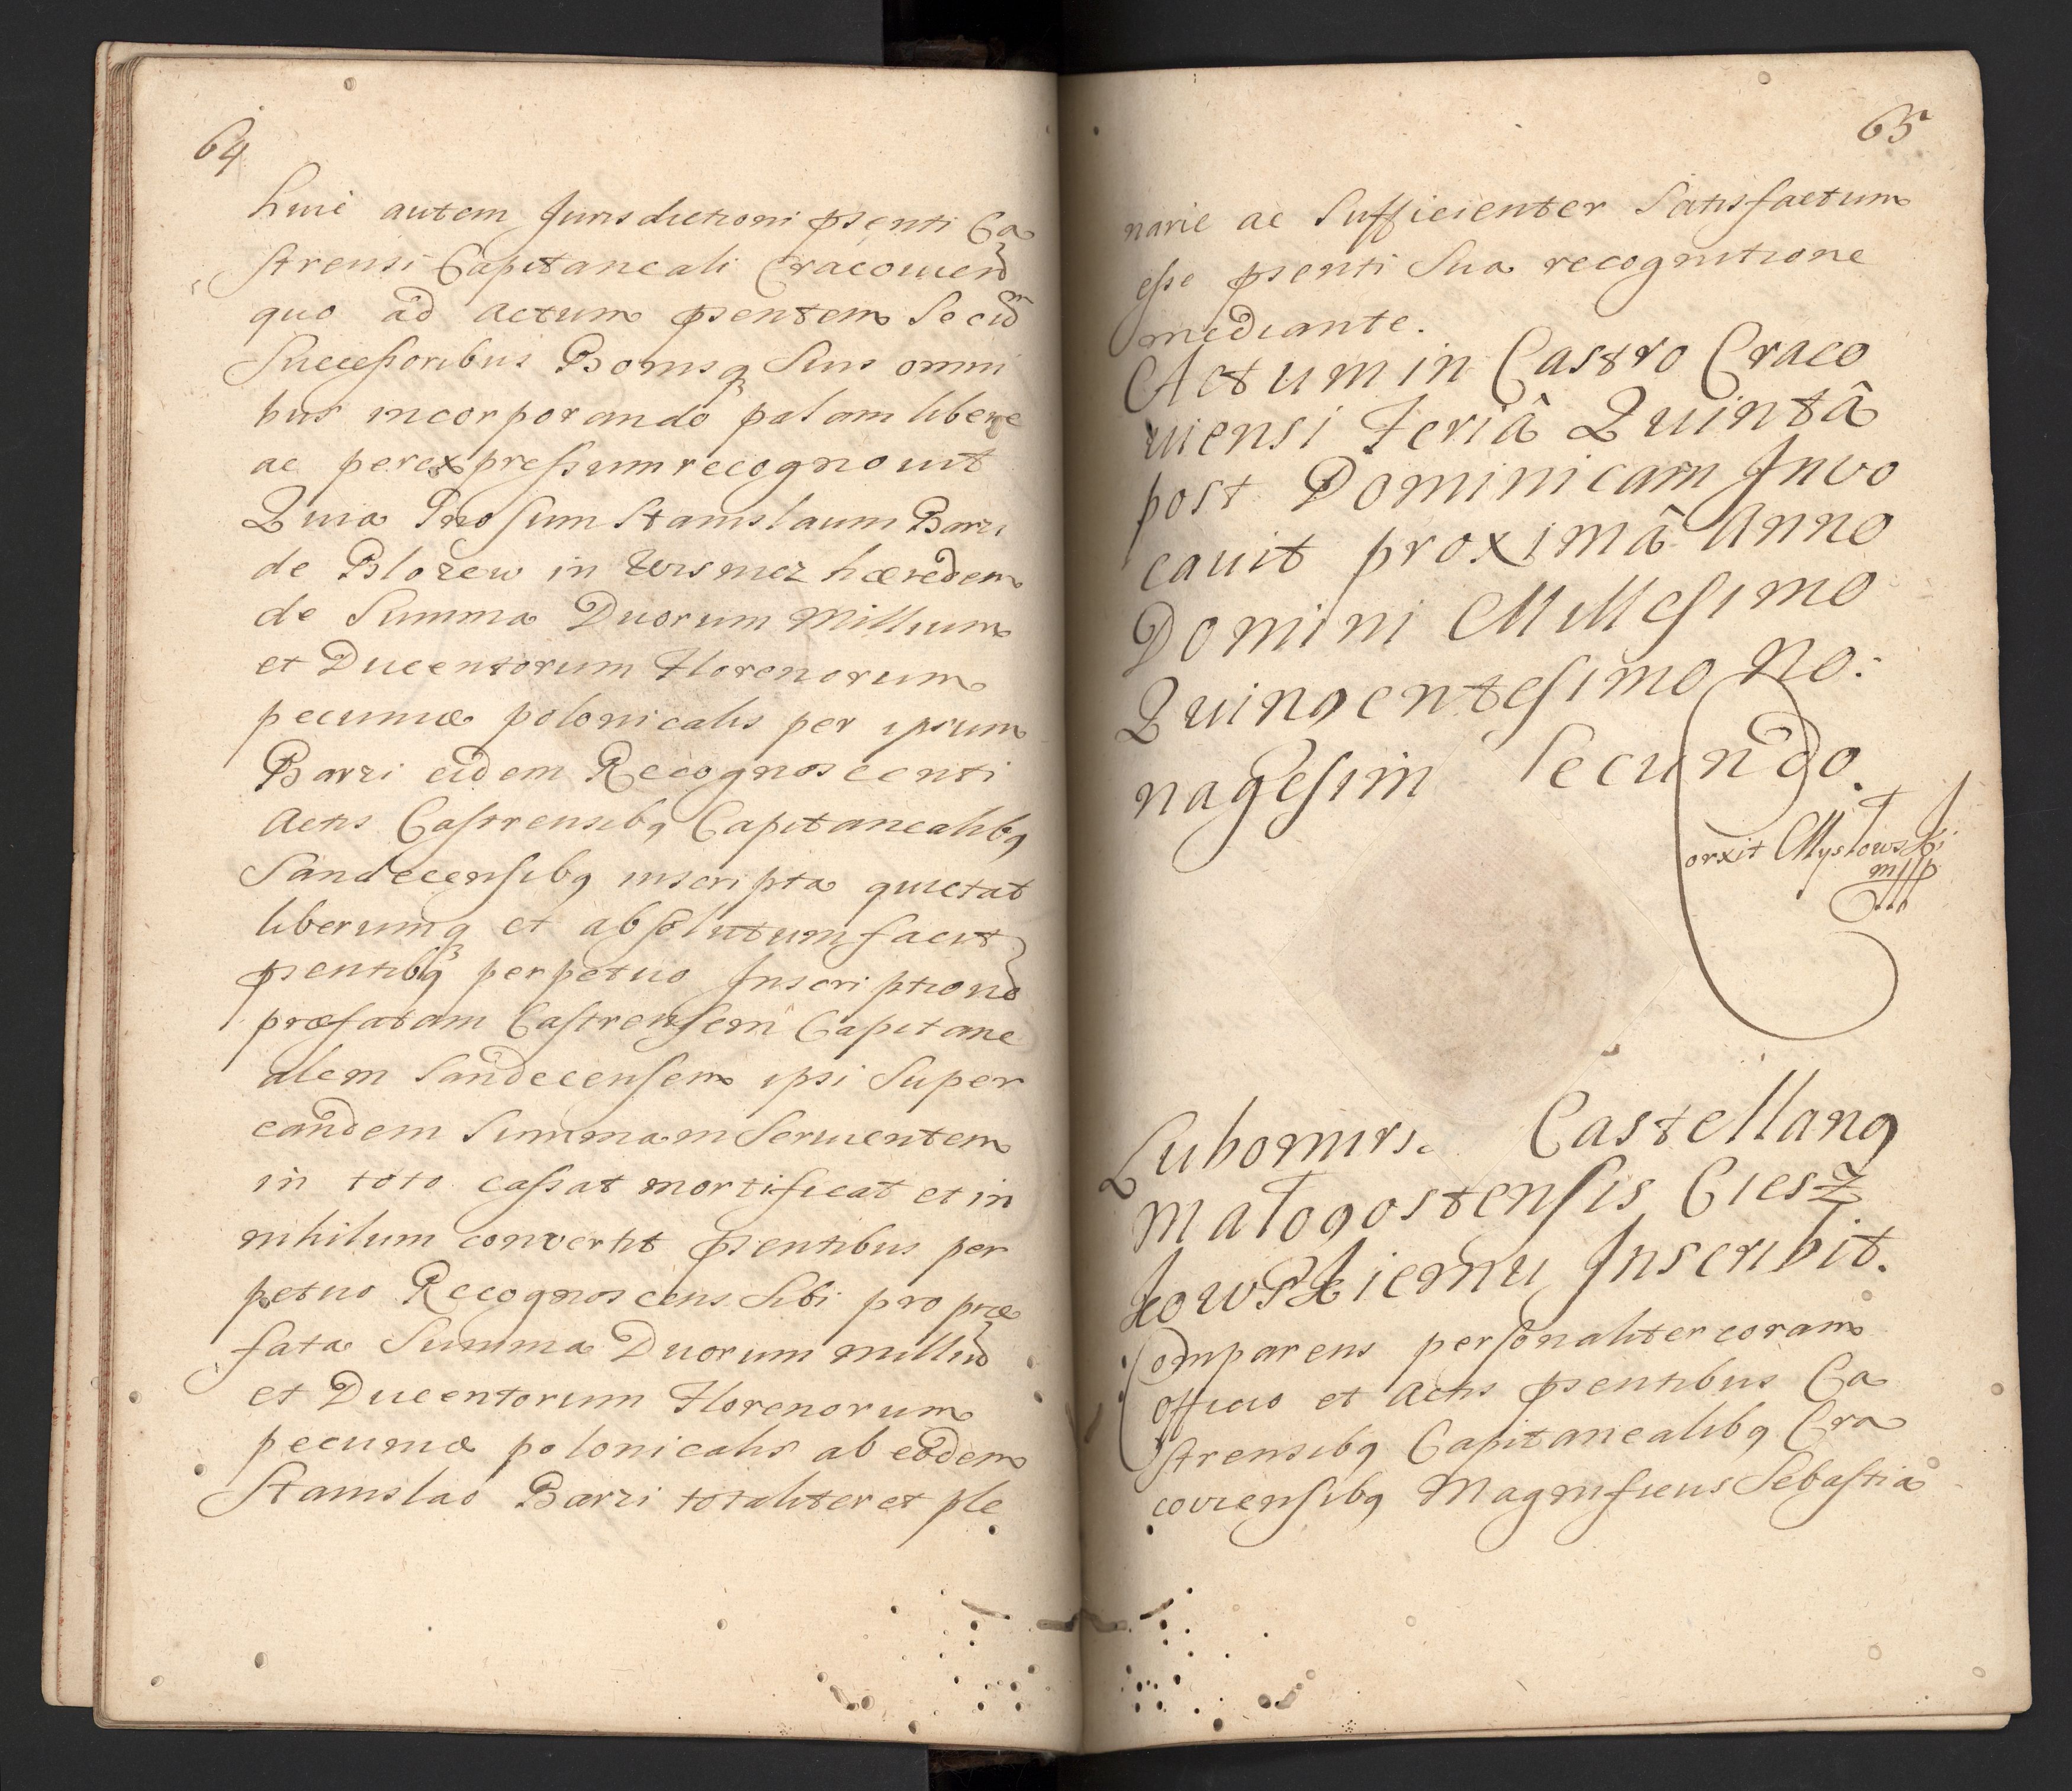 64
huic autem Jurisdictioni pñsenti Ca
strensi Capitaneali Cracouien
quo ad actum pñsentem Se cũ
Successoribus Bonisq Suis omni
bus incorporando palam libere
ac per expressum recognouit
Quia Gnosum Stanislaum Barzi
de Blozew in Uismez hæredem
de Summa Duorum Millium
et Ducentorum Florenorum
pecuniæ polonicalis per ipsum
Barzi eidem Recognoscenti
Actis Castrensibq Capitanealibq
Sandecensibq inscripta quietat
liberumq et absolutum facit
pñsentibq perpetuo Inscription
præfatam Castrensem Capitane
alem Sandecensem ipsi Super
eandem Summam Seruientem
in toto cassat mortificat et in
nihilum convertit pñsentibus per
petuo Recognoscens Sibi pro præ
fata Summa Duorum milliũ
et Ducentorum Florenorum
pecuniæ polonicalis ab eodem
Stanislao Barzi totaliter et ple
65
narie ac Sufficienter Satisfactum
esse pñsenti Sua recognitione
mediante.
Actum in Castro Craco
uiensi Feriâ Quintâ
post Dominicam Invo
cauit proximâ Anno
Domini Millesimo
Quingentesimo No:
nagesim Secundo.
orxit Mysłowski
mpp
Lubomirs. Castellanq
Małogostensis Ciesz
kowskiemu Inscribit.
Comparens personaliter coram
Officio et Actis pñsentibus Ca
strensibq Capitanealibq Cra
coviensibq Magnificus Sebastia